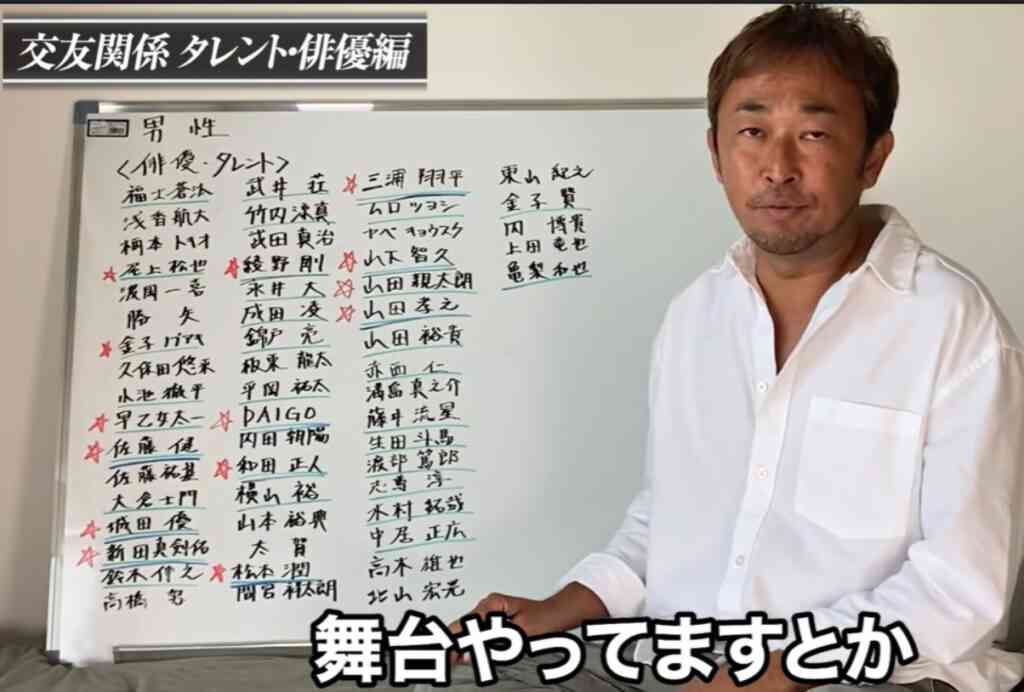 交友関係 タレント・俳優編
男性
<俳優・タレント>
福士蒼汰
浅香航大
柄本トキオ
☆尾上松也
波岡一喜
勝矢
☆金子ノブアキ
久保田悠来
小池徹平
☆早乙女太一
☆佐藤健
佐藤祐基
大倉士門
☆城田優
☆新田真剣佑
鈴木伸之
高橋
武井荘
竹内涼真
武田真治
☆綾野剛
永井大
成田凌
錦戸亮
板東龍太
平岡祐太
☆DAIGO
内田朝陽
☆和田正人
横山裕
山本裕典
太賀
☆松本潤
間宮祥太朗
☆三浦翔平
ムロツヨシ
ナベキョウスケ
☆山下智久
☆山田親太朗
☆山田孝之
山田裕貴
赤西仁
満島真之介
藤井流星
生田斗馬
渡部篤郎
志尊淳
木村拓哉
中居正広
高木雄也
北山宏光
東山紀之
金子賢
内博貴
上田竜也
亀梨和也
舞台やってますとか